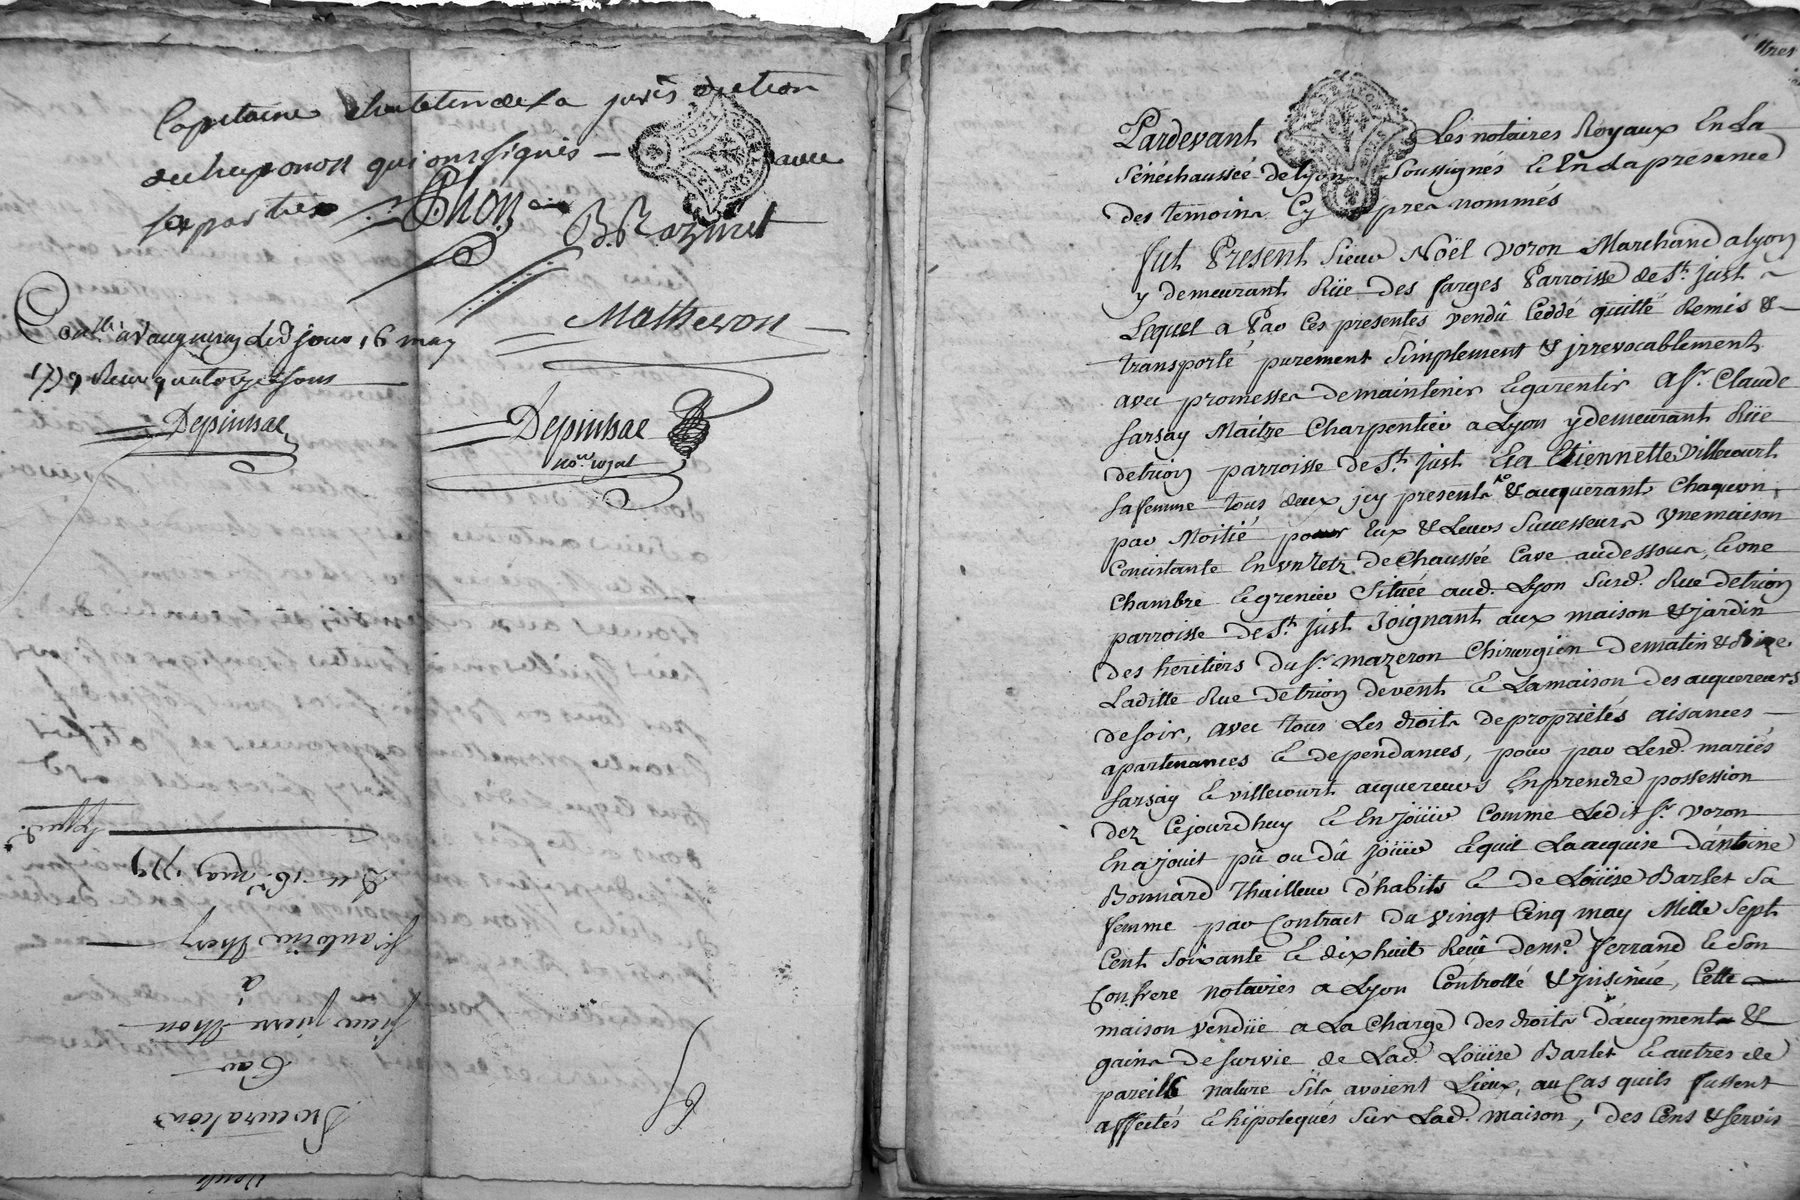 Capitaine chatelain de la jurisdiction
qui ont signés — avec
les parties
Thon
B. Razuret
Matheron
à Vaugneray led jour 16 may
1779 Reçu quatorze sous
Depinhac
Depinhac
no.re royal
Procuration
Par
sieur pierre Thon
à
sr antoine Thery
Du 16 may 1779
Pardevant Les notaires Royaux En La
Sénéchaussée de Lyon Soussignés & En La présence
des temoins Cy après nommés
Fut Present Sieur Noël Voron Marchand a Lyon
y demeurant Rüe des farges Parroisse de St. Just
Lequel a Par Ces presentes vendû Ceddé quitté Remis &
transporté purement Simplement & jrrevocablement
avec promesse de maintenir & garentir a Sr. Claude
farsay Maitre Charpentier a Lyon y demeurant Rüe
de trion parroisse de St. Just & a Etiennette Villecourt
sa femme tous deux jcy presents & acquerant Chaquun
par Moitié pour Eux & Leurs Successeurs Vne maison
Concistante En vn Retz de Chaussée Cave au dessous, & vne
Chambre & grenier Située aud. Lyon Susd. Rue de trion
parroisse de St. Just Joignant aux maison & jardin
des heritiers du Sr. mazeron Chirurgien de matin & Bize
Laditte Rue de trion de vent & La maison des acquereurs
de soir, avec tous Les droits de proprietés aisances
apartenances & dependances, pour par Lesd. mariés
farsay & villecourt acquereurs En prendre possession
dez Cejourdhuy & En joüir Comme Ledit Sr. Voron
En a jouit pû ou dû joüir & quil La acquise d'antoine
Bonnard Thailleur d'habits & de Loüise Barlet Sa
femme par Contract du vingt Cinq may Mille Sept
Cent Soixante & dix huit Reçu de me. ferrand & Son
Confrere notaires a Lyon Controllé & jnsinué, Cette
maison vendüe a La Charge des droits d'augments &
gains de survie de Lad. Loüise Barlet & autres de
pareille nature Sils avoient Lieux, au Cas quils fussent
affectés & hipotequés Sur Lad. maison, des Cens & Servis